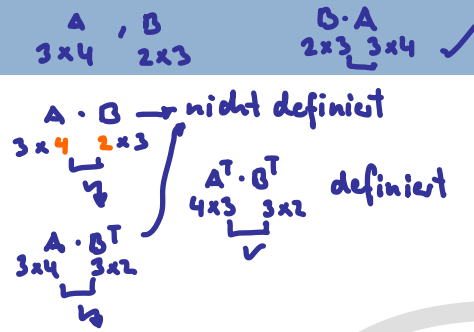 A , B B · A
3×4 2×3 2×3 3×4 ✓
A · B → nicht definiert
3×4 2×3
Aᵀ · Bᵀ definiert
4×3 3×2
✓
A · Bᵀ
3×4 3×2